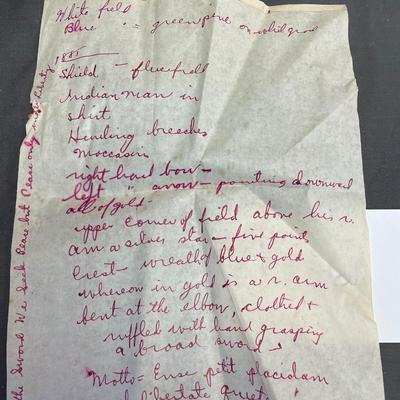 White field
Blue " = green pine on which grow
1885
Shield - blue field
Indian man in
shirt
Hending breeches
moccasin
right hand bow -
left " arrow - pointing downward
all of gold.
upper corner of field above his r.
arm a silver star - five points
Crest - wreath of blue & gold
whereon in gold is a r. arm
bent at the elbow, clothed &
ruffled with hand grasping
a broad sword -
Motto = Ense petit placidam
libertate quietem
the Sword We Seek Peace but Peace only under Liberty